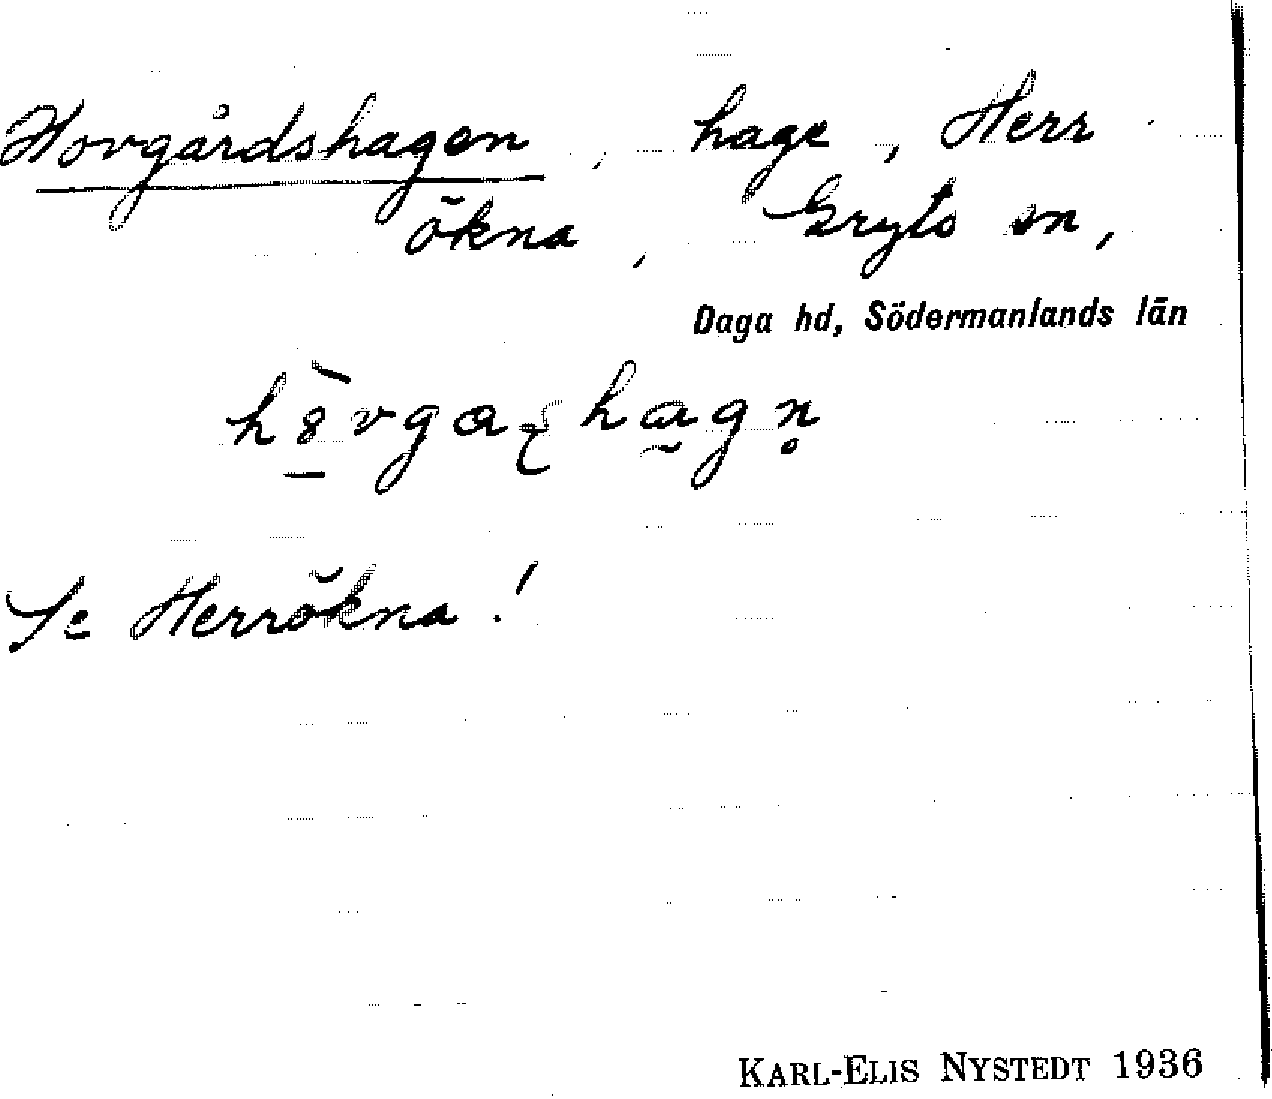 Hovgårdshagen, hage, Herr
ökna, Gryts sn,
Daga hd, Södermanlands län
Se Herrökna!
KARL-ELIS NYSTEDT 1936